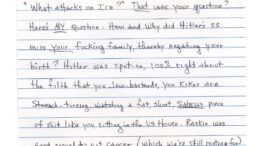 "What attacks on ICE?" That was your question?
Here's MY Question: How and Why did Hitler's SS
miss your fucking family, thereby negating your
birth? Hitler was spot-on, 100% right about
the filth that you Jew-bastards, you Kikes are
Stomach-turning, watching a fat, short, SMELLY piece
of shit like you sitting in the US House. Raskin was
good enough to get cancer (which we're still rooting for)